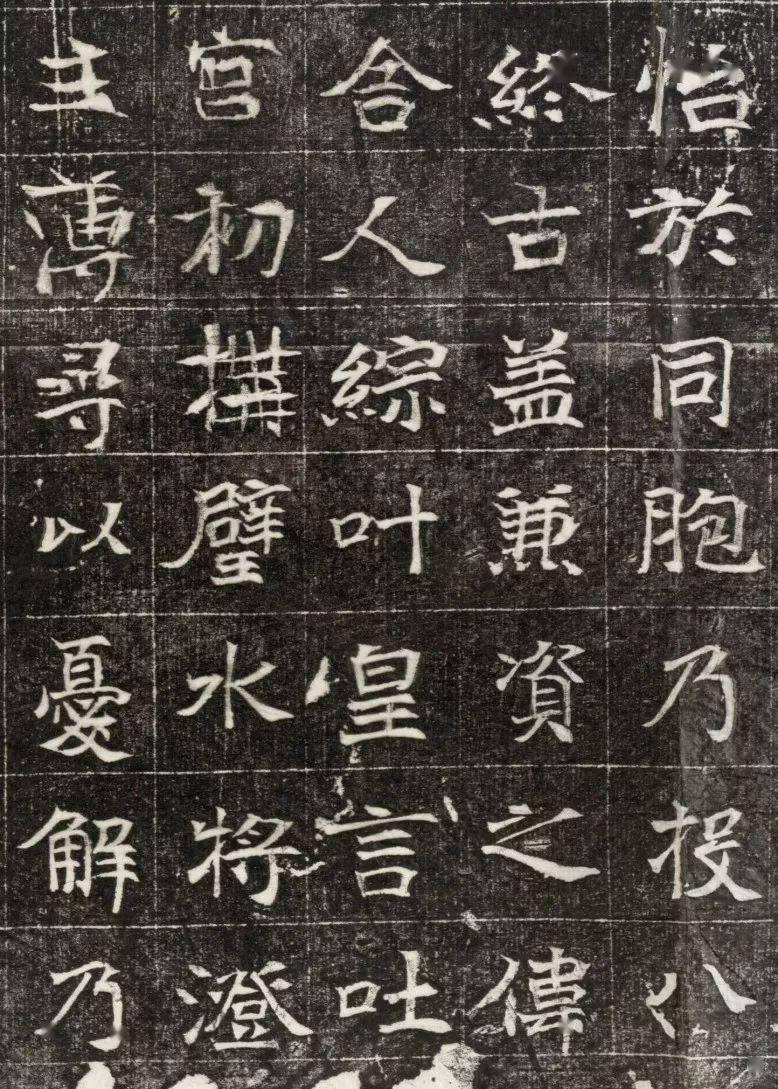 怡於同胞乃投八
終古盖兼資之偉
舍人綜叶皇言吐
宮初搆璧水將澄
主薄尋以憂解乃